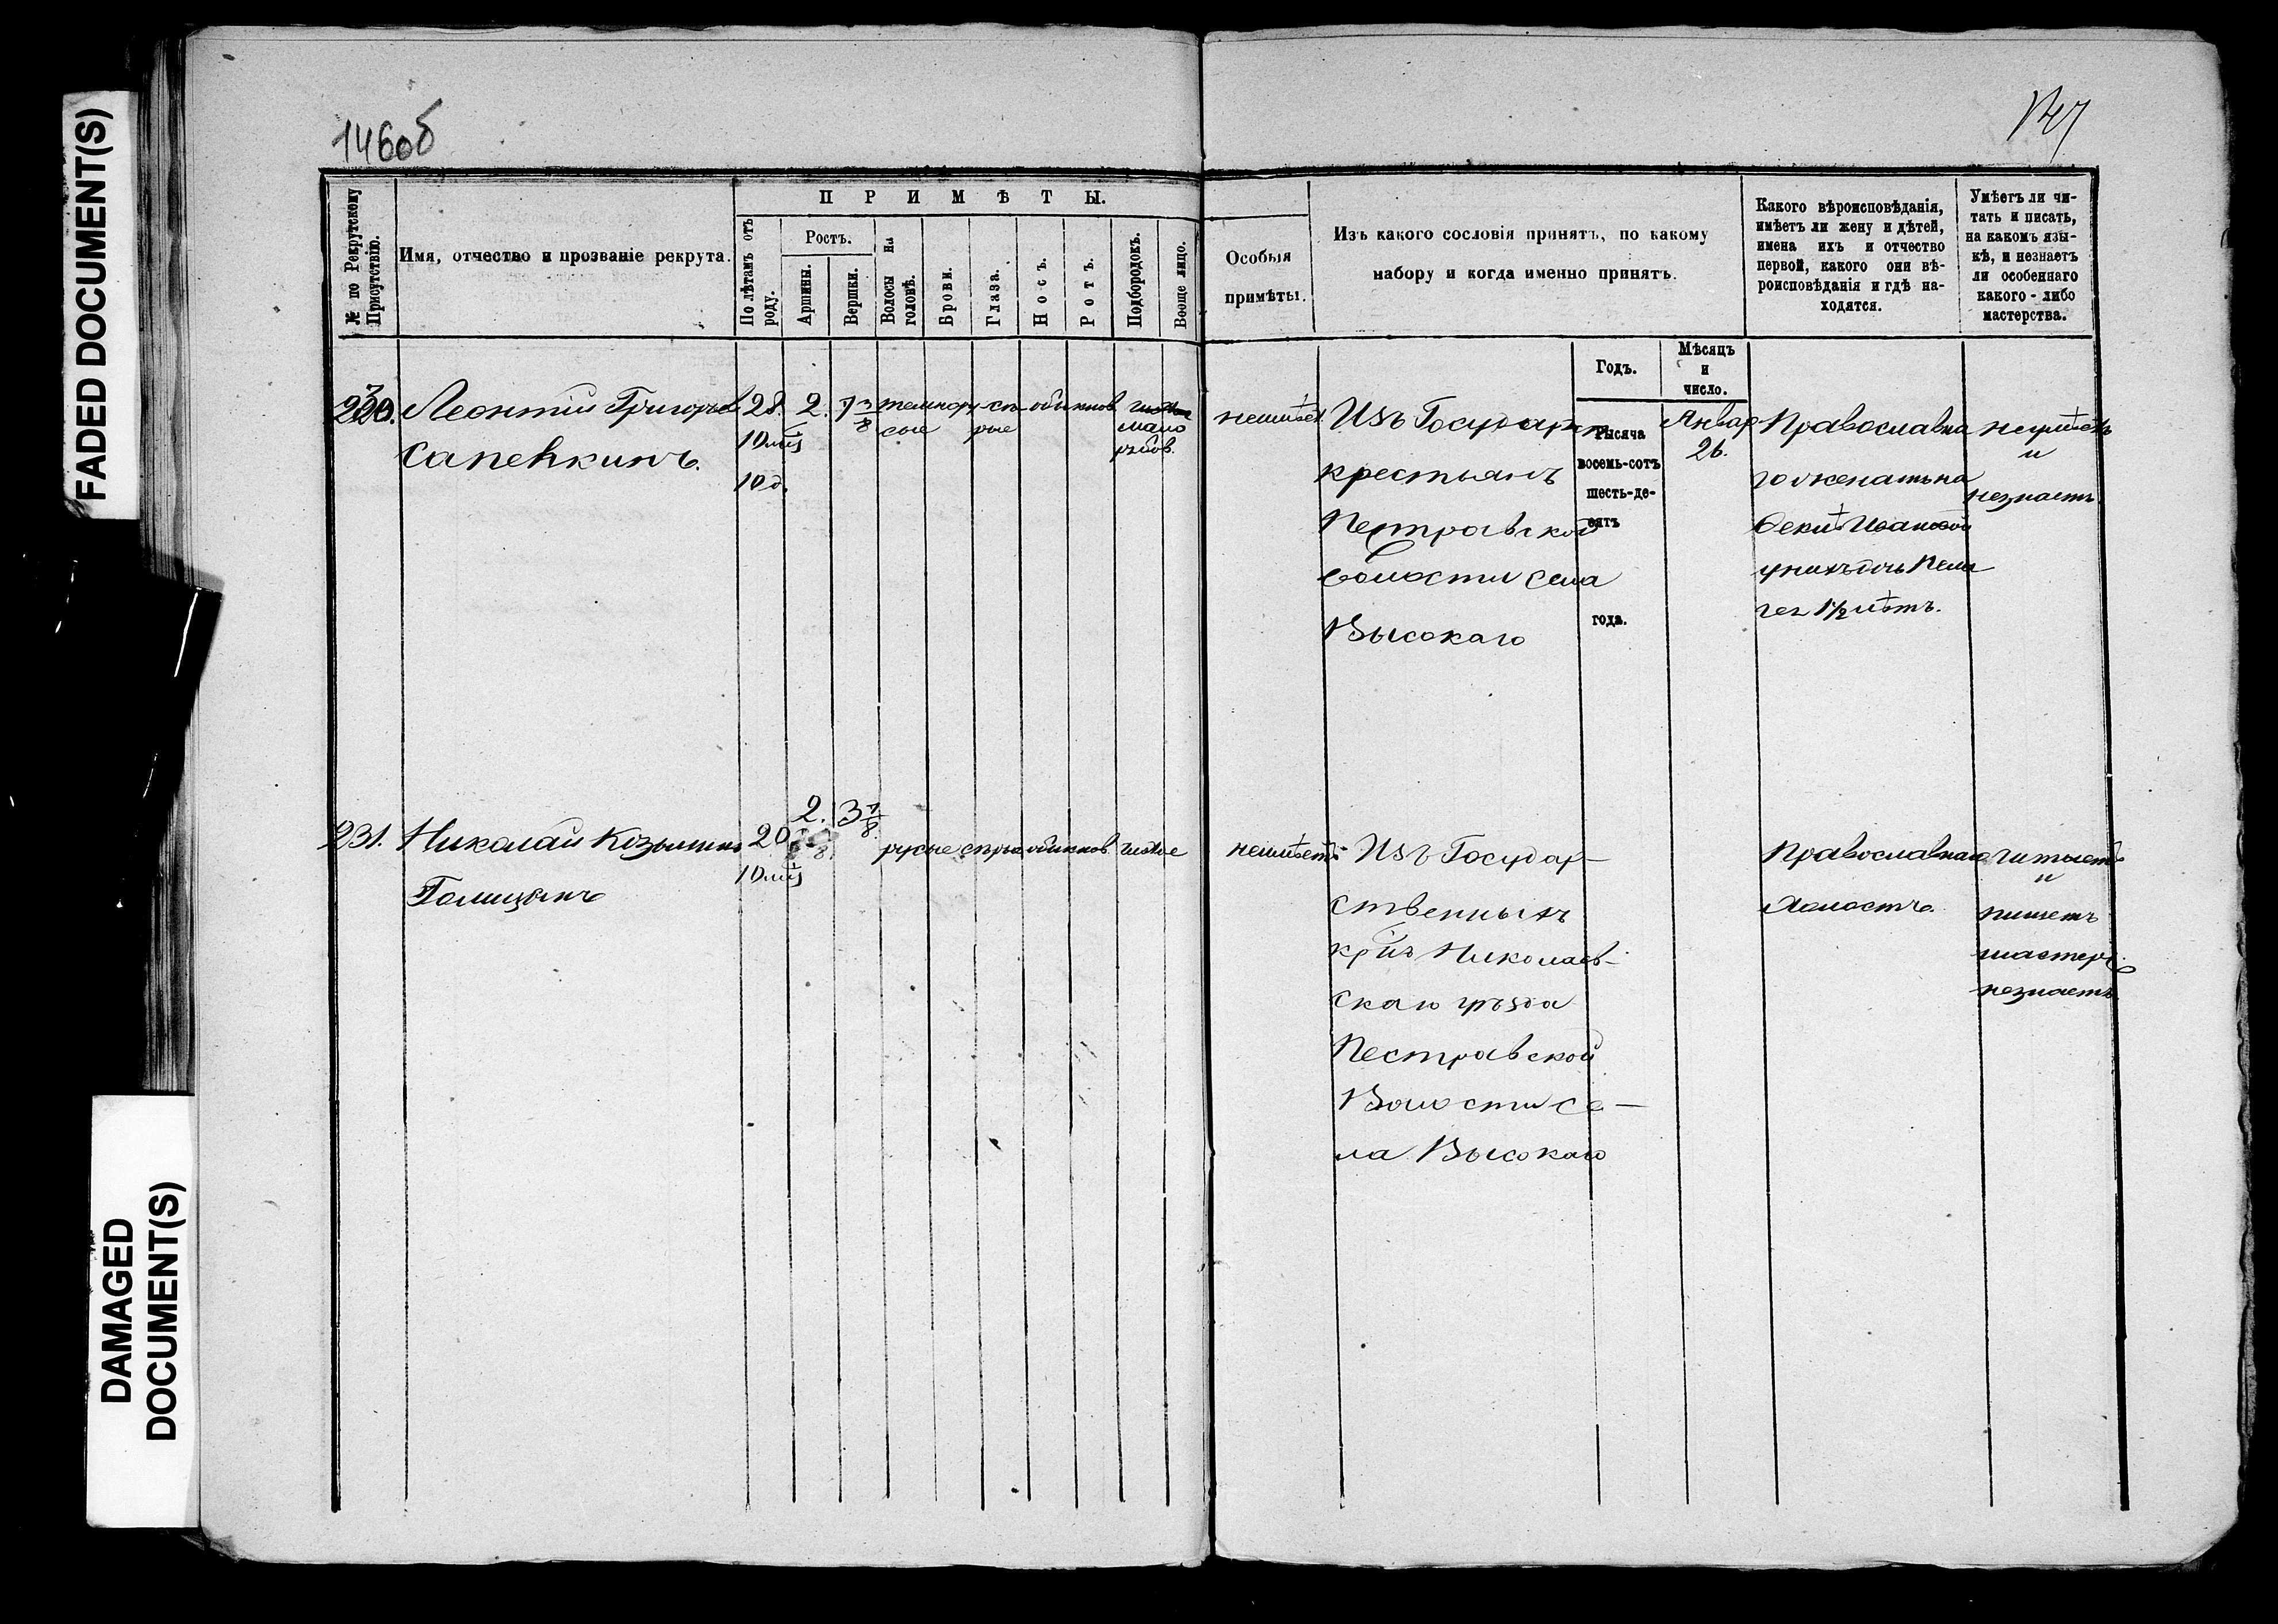 FADED DOCUMENT(S)
DAMAGED
DOCUMENT(S)
146об
147
№ по Рекрутскому
Присутствію.
Имя, отчество и прозваніе рекрута.
ПРИМѢТЫ.
По лѣтамъ отъ
роду.
Ростъ.
Аршины.
Вершки.
Волосы на
головѣ.
Брови.
Глаза.
Носъ.
Ротъ.
Подбородокъ.
Вооще лицо.
Особыя
примѣты.
Изъ какого сословія принятъ, по какому
набору и когда именно принятъ.
Какого вѣроисповѣданія,
имѣетъ ли жену и дѣтей,
имена ихъ и отчество
первой, какого они вѣ-
роисповѣданія и гдѣ на-
ходятся.
Умѣетъ ли чи-
тать и писать,
на какомъ язы-
кѣ, и незнаетъ
ли особеннаго
какого-либо
мастерства.
Годъ.
Мѣсяцъ
и
число.
230.
Леонтій Григорьев
Сапенкинъ.
28.
10 мѣс
10 д.
2.
7 3/8
темнору
сые
сѣ
рые
обыкнов
чистое
мало
рябов.
неимѣет
Изъ Государ
крестьянъ
Пестравской
Волости села
Высокаго
Тысяча
восемь-сотъ
шесть-де-
сятъ
года.
Январ
26.
Православна
го женатъ на
Феклѣ Ивановой
у нихъ дочь Пела
гея 1 1/2 лѣтъ.
неумѣетъ
и
незнаетъ
231.
Николай Козьминъ
Голицынъ
20
10 мѣс
2.
3 7/8
русые
сѣрые
обыкнов.
чистое
неимѣетъ
Изъ Государ-
ственныхъ
кр нъ Николаев-
скаго уѣзда
Пестравской
Волости се-
ла Высокаго
Православнаго
Холостъ.
читаетъ
и
пишетъ
мастерс
незнаетъ